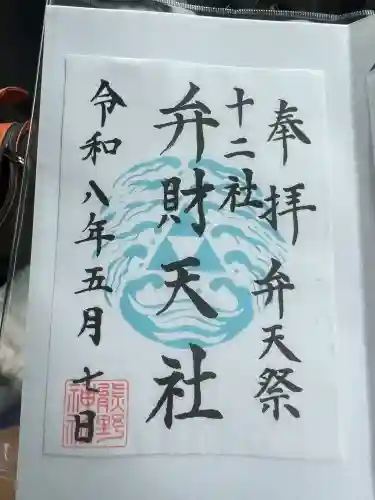 奉拝 弁天祭
十二社
弁財天社
令和八年五月七日
熊野
神社